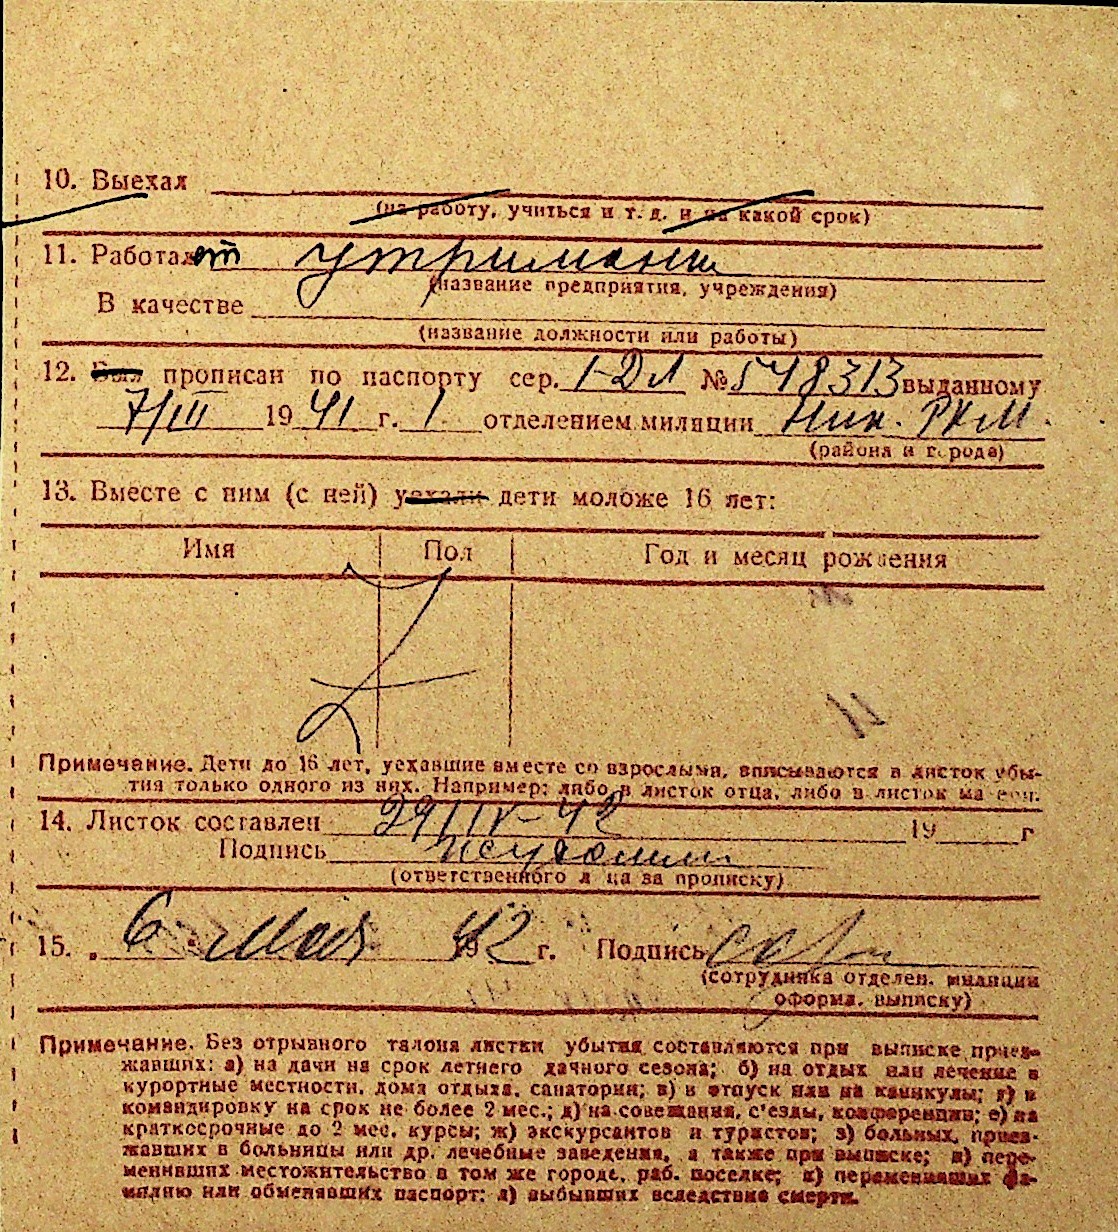 10. Выехал
(на работу, учиться и т. д. и на какой срок)
11. Работал
(название предприятия, учреждения)
В качестве
(название должности или работы)
12. Был прописан по паспорту сер. I-ДЛ № 548313 выданному
7/III 1941 г. 1 отделением милиции Ник. РКМ.
(района и города)
13. Вместе с ним (с ней) уехали дети моложе 16 лет:
Имя Пол Год и месяц рождения
Примечание. Дети до 16 лет, уехавшие вместе со взрослыми, вписываются в листок убы-
тия только одного из них. Например: либо в листок отца, либо в листок матери.
14. Листок составлен 29/IV-42 19 г
Подпись
(ответственного лица за прописку)
15. „ 6 " Мая 1942 г. Подпись
(сотрудника отделен. милиции
оформл. выписку)
Примечание. Без отрывного талона листки убытия составляются при выписке приез-
жавших: а) на дачи на срок летнего дачного сезона; б) на отдых или лечение в
курортные местности, дома отдыха, санатории; в) в отпуск или на каникулы; г) в
командировку на срок не более 2 мес.; д) на совещания, с'езды, конференции; е) на
краткосрочные до 2 мес. курсы; ж) экскурсантов и туристов; з) больных, приез-
жавших в больницы или др. лечебные заведения, а также при выписке; и) пере-
менивших местожительство в том же городе, раб. поселке; к) переменивших фа-
милию или обменявших паспорт; л) выбывших вследствие смерти.